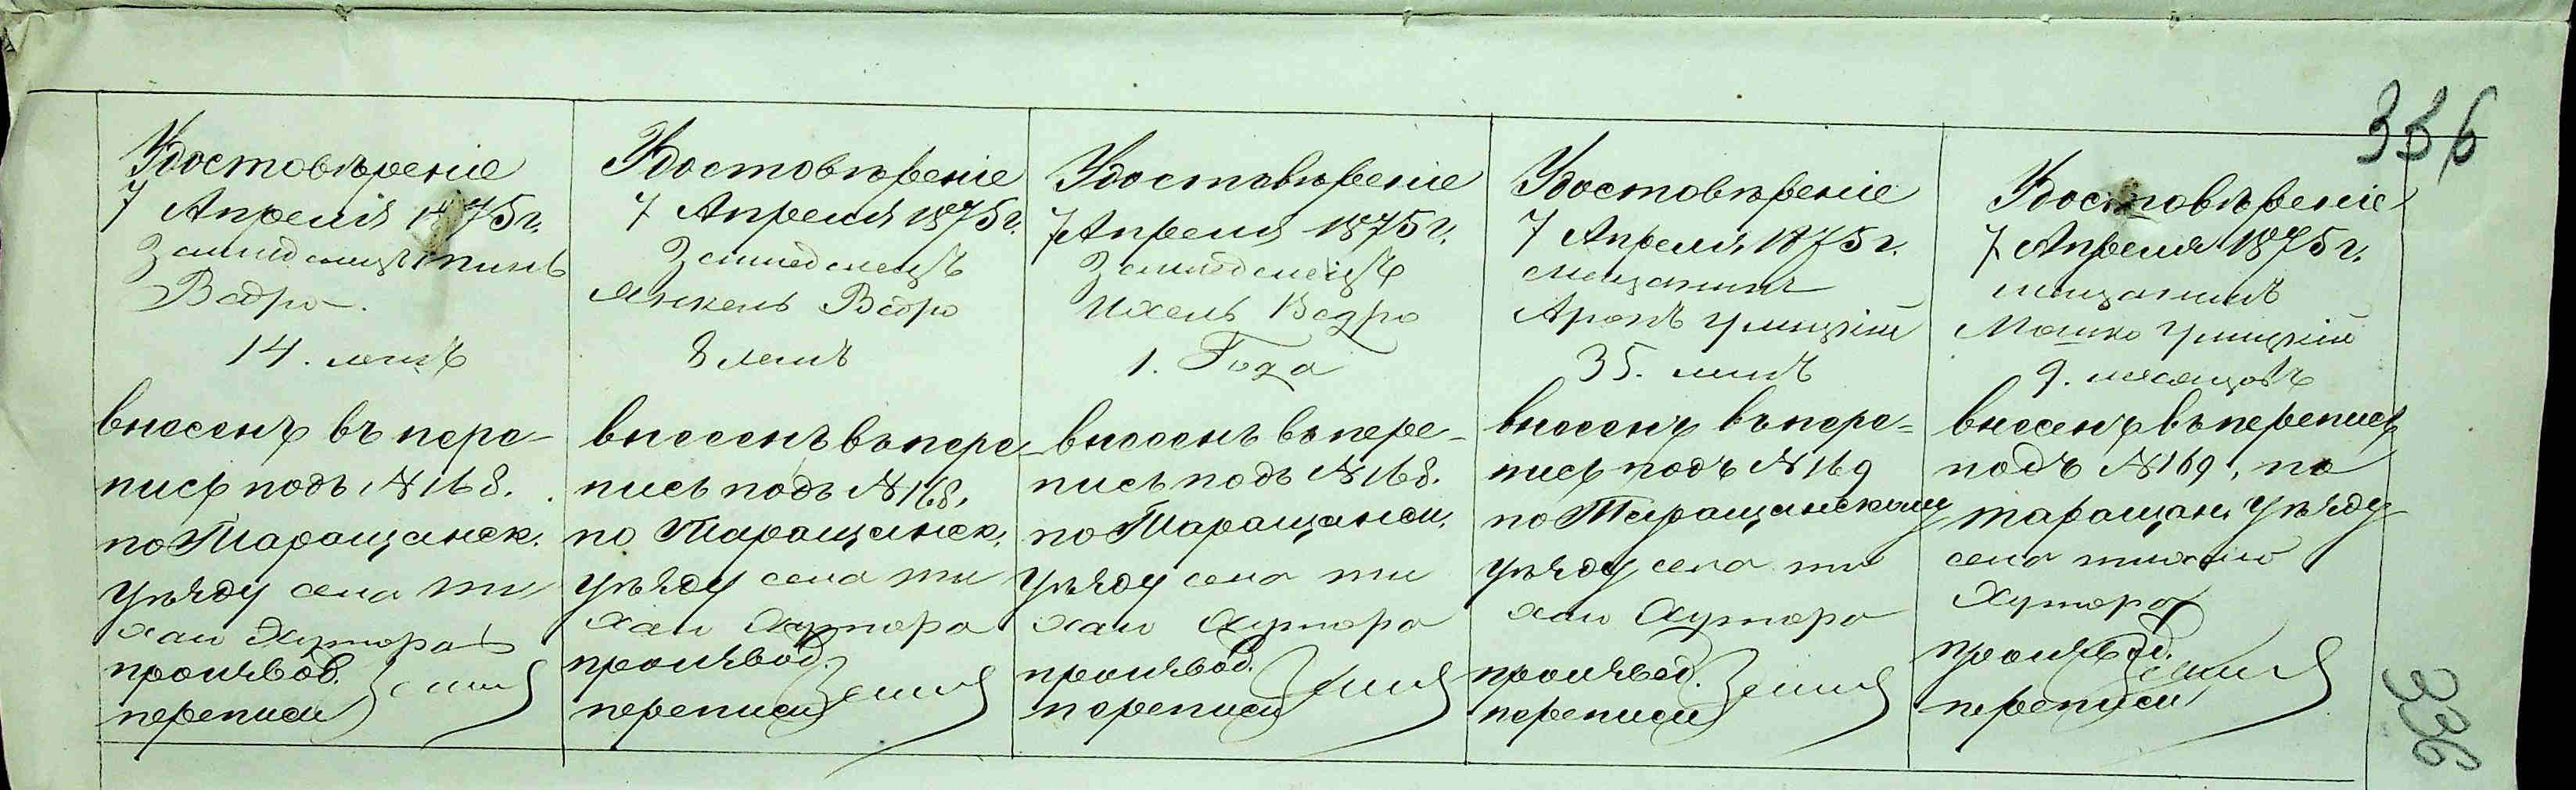 336
Удостовѣреніе
7 Апреля 1875 г.
Ведро.
14. летъ
внесенъ въ пере-
пись подъ № 168.
по Таращанск.
уѣзду села Ти
хаи Хутора
производ.
переписи
Удостовѣреніе
7 Апреля 1875 г.
Земледелецъ
Янкель Ведро
8 летъ
внесенъ въ пере-
пись подъ № 168,
по Таращанск.
уѣзду села Ти
хаи Хутора
производ.
переписи
Удостовѣреніе
7 Апреля 1875 г.
Земледелецъ
Ихель Ведро
1. Года
внесенъ въ пере-
пись подъ № 168.
по Таращанск.
уѣзду села Ти
хаи Хутора
производ.
переписи
Удостовѣреніе
7 Апреля 1875 г.
мещанинъ
Аронъ Улицкій
35. летъ
внесенъ въ пере-
пись подъ № 169
по Таращанскому
уѣзду села Ти
хаи Хутора
производ.
переписи
Удостовѣреніе
7 Апреля 1875 г.
мещанинъ
Мошко Улицкій
9. месяцовъ
внесенъ въ перепись
подъ № 169, по
таращан. уѣзду
села
Хутора
производ.
переписи
336